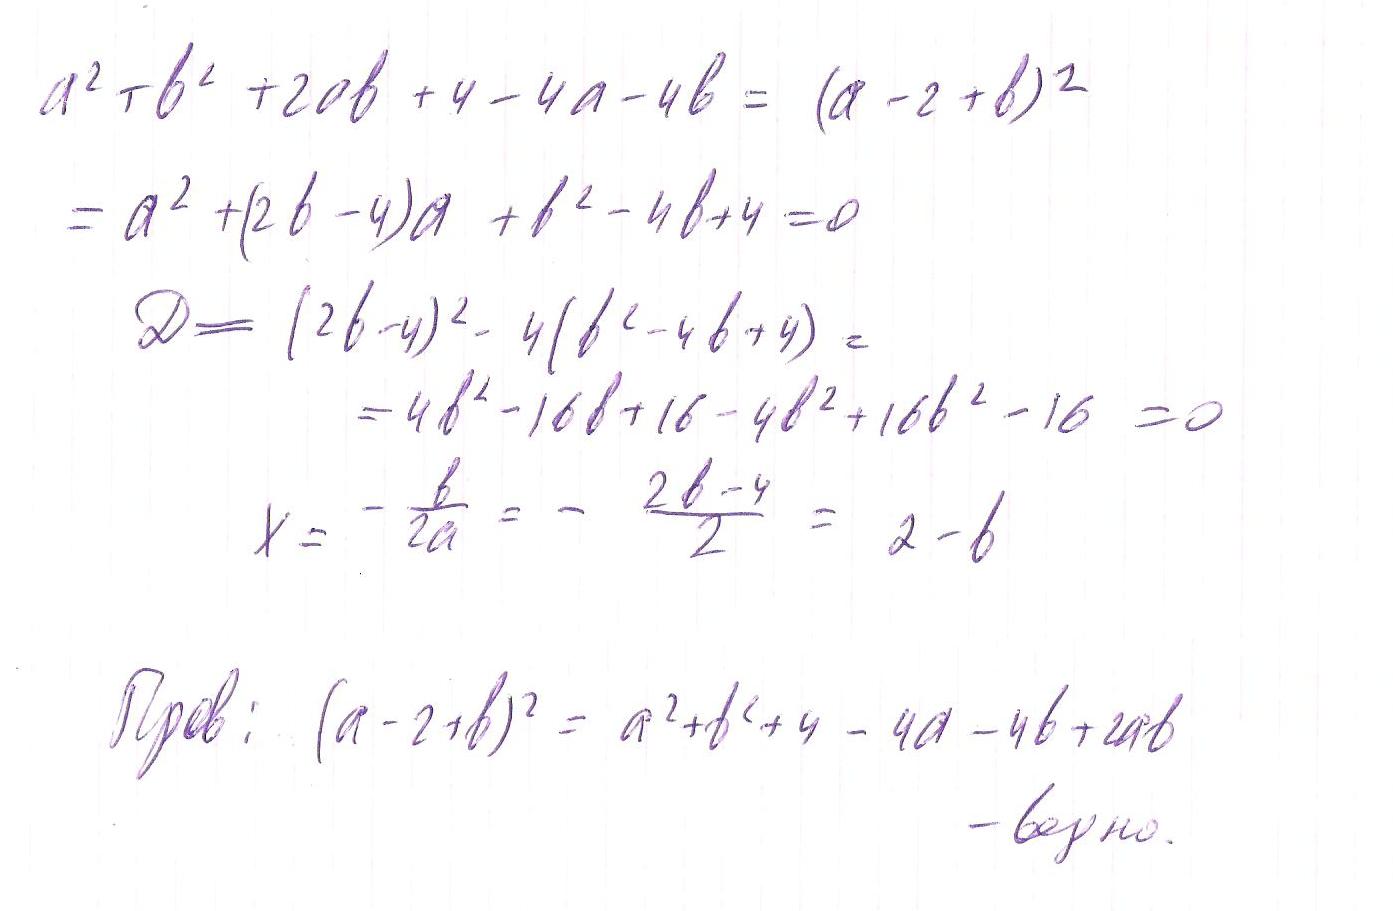 a² + b² + 2ab + 4 - 4a - 4b = (a - 2 + b)²
= a² + (2b - 4)a + b² - 4b + 4 = 0
D = (2b - 4)² - 4(b² - 4b + 4) =
= 4b² - 16b + 16 - 4b² + 16b² - 16 = 0
x = - b/2a = - (2b - 4)/2 = 2 - b
Пров: (a - 2 + b)² = a² + b² + 4 - 4a - 4b + 2ab
- верно.